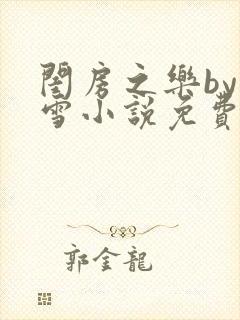 閨房之樂by
雪小說免費
郭金龍